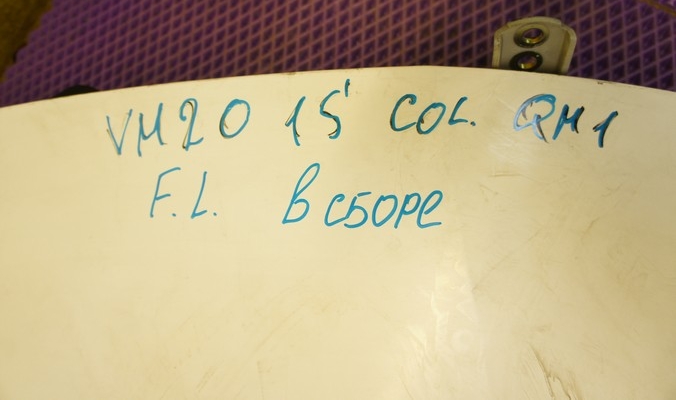 VM20 15' COL. QM1
F.L. В СБОРЕ